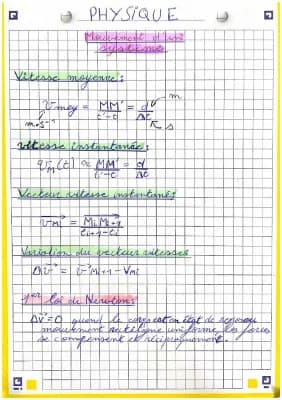 PHYSIQUE
Mouvement d'un
système
Vitesse moyenne :
Vmoy = MM' / t'-t = d / Δt
m
m.s⁻¹
s
Vitesse instantanée :
Vm(t) ≈ MM' / t'-t = d / Δt
Vecteur vitesse instantané :
Vmi = MiMi+1 / ti+1-ti
Variation du vecteur vitesses
Δv = V Mi+1 - VMi
1ère loi de Newton :
Δv = 0 quand le corps est en état de repos ou
mouvement rectiligne uniforme, les forces
se compensent et réciproquement.